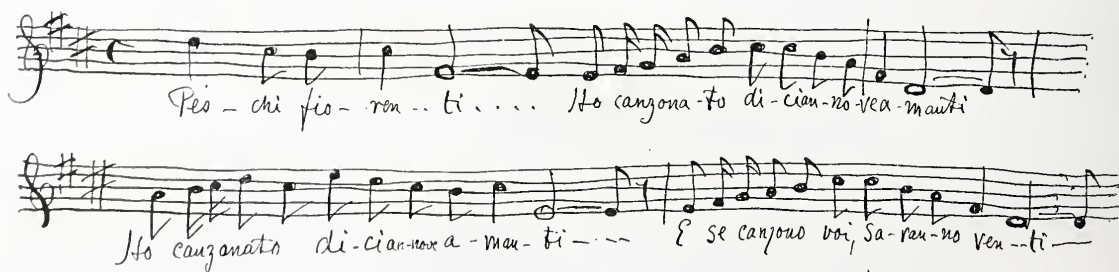 Pès-chi fio-ren--ti.... Ho canzona-to di-cian-no-vea-manti
Ho canzonato di-cian-nove a-man-ti-... E se canzono voi, sa-ran-no ven--ti—